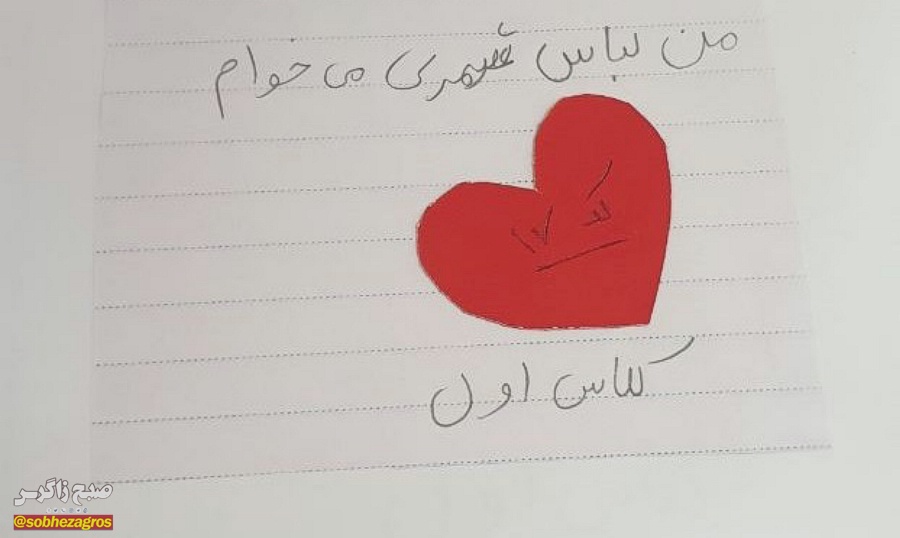 من لباس شهمرکی می خوام
کد ۱۷
کلاس اول
صبح زاگرس
@sobhezagros